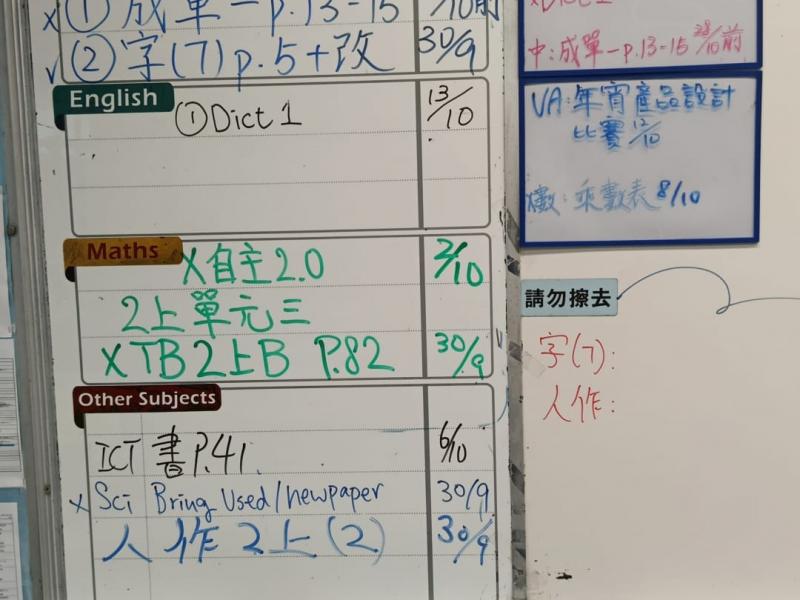 x ① 成單一 p.13-15 /10前
✓ ② 字(7) p.5+改 30/9
English
① Dict 1 13/10
Maths
X 自主2.0 2/10
2上單元三
X TB2上B P.82 30/9
Other Subjects
ICT 書P.41. 6/10
x Sci Bring Used/newpaper 30/9
人作2上(2) 30/9
中:成單一p.13-15 28/10前
VA:年宵產品設計
比賽 12/10
數:乘數表 8/10
請勿擦去
字(7):
人作: